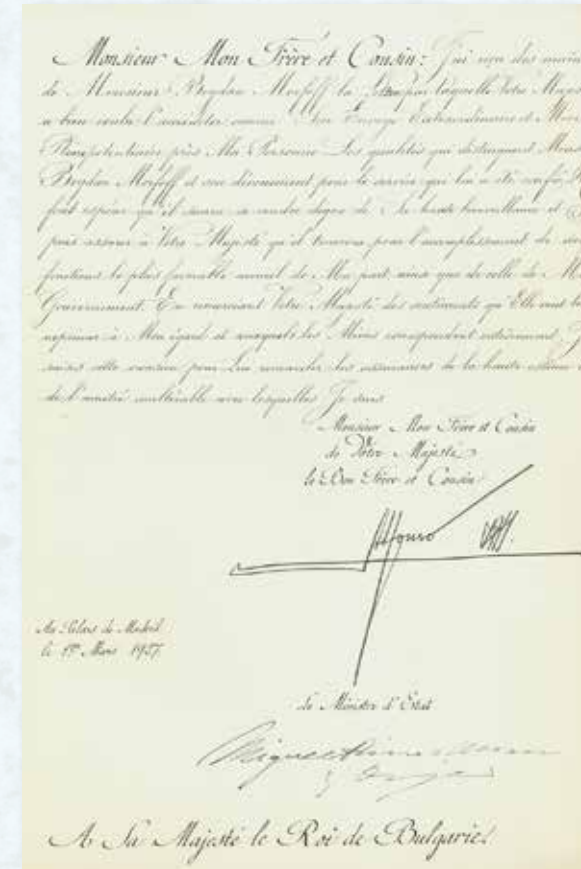 Monsieur Mon Frère et Cousin: J'ai reçu des mains
de Monsieur Bogdan Morfoff la lettre par laquelle Votre Majes
a bien voulu l'accréditer comme Son Envoyé Extraordinaire et Min
Plénipotentiaire près Ma Personne. Les qualités qui distinguent Mons
Bogdan Morfoff et son dévouement pour le service qui lui a été confié, M
font espérer qu'il saura se rendre digne de Sa haute bienveillance et
puis assurer à Votre Majesté qu'il trouvera pour l'accomplissement de ses
fonctions le plus favorable accueil de Ma part, ainsi que de celle de M
Gouvernement. En remerciant Votre Majesté des sentiments qu'Elle veut b
exprimer à Mon égard et auxquels les Miens correspondent entièrement, J
saisis cette occasion pour Lui renouveler les assurances de la haute estime
de l'amitié inaltérable avec lesquelles Je suis
Monsieur Mon Frère et Cousin
de Votre Majesté
le Bon Frère et Cousin
Alfonso
Au Palais de Madrid
le 1er Mars 1927.
Le Ministre d'Etat
Miguel Primo de Rivera
y
A Sa Majesté le Roi de Bulgarie.